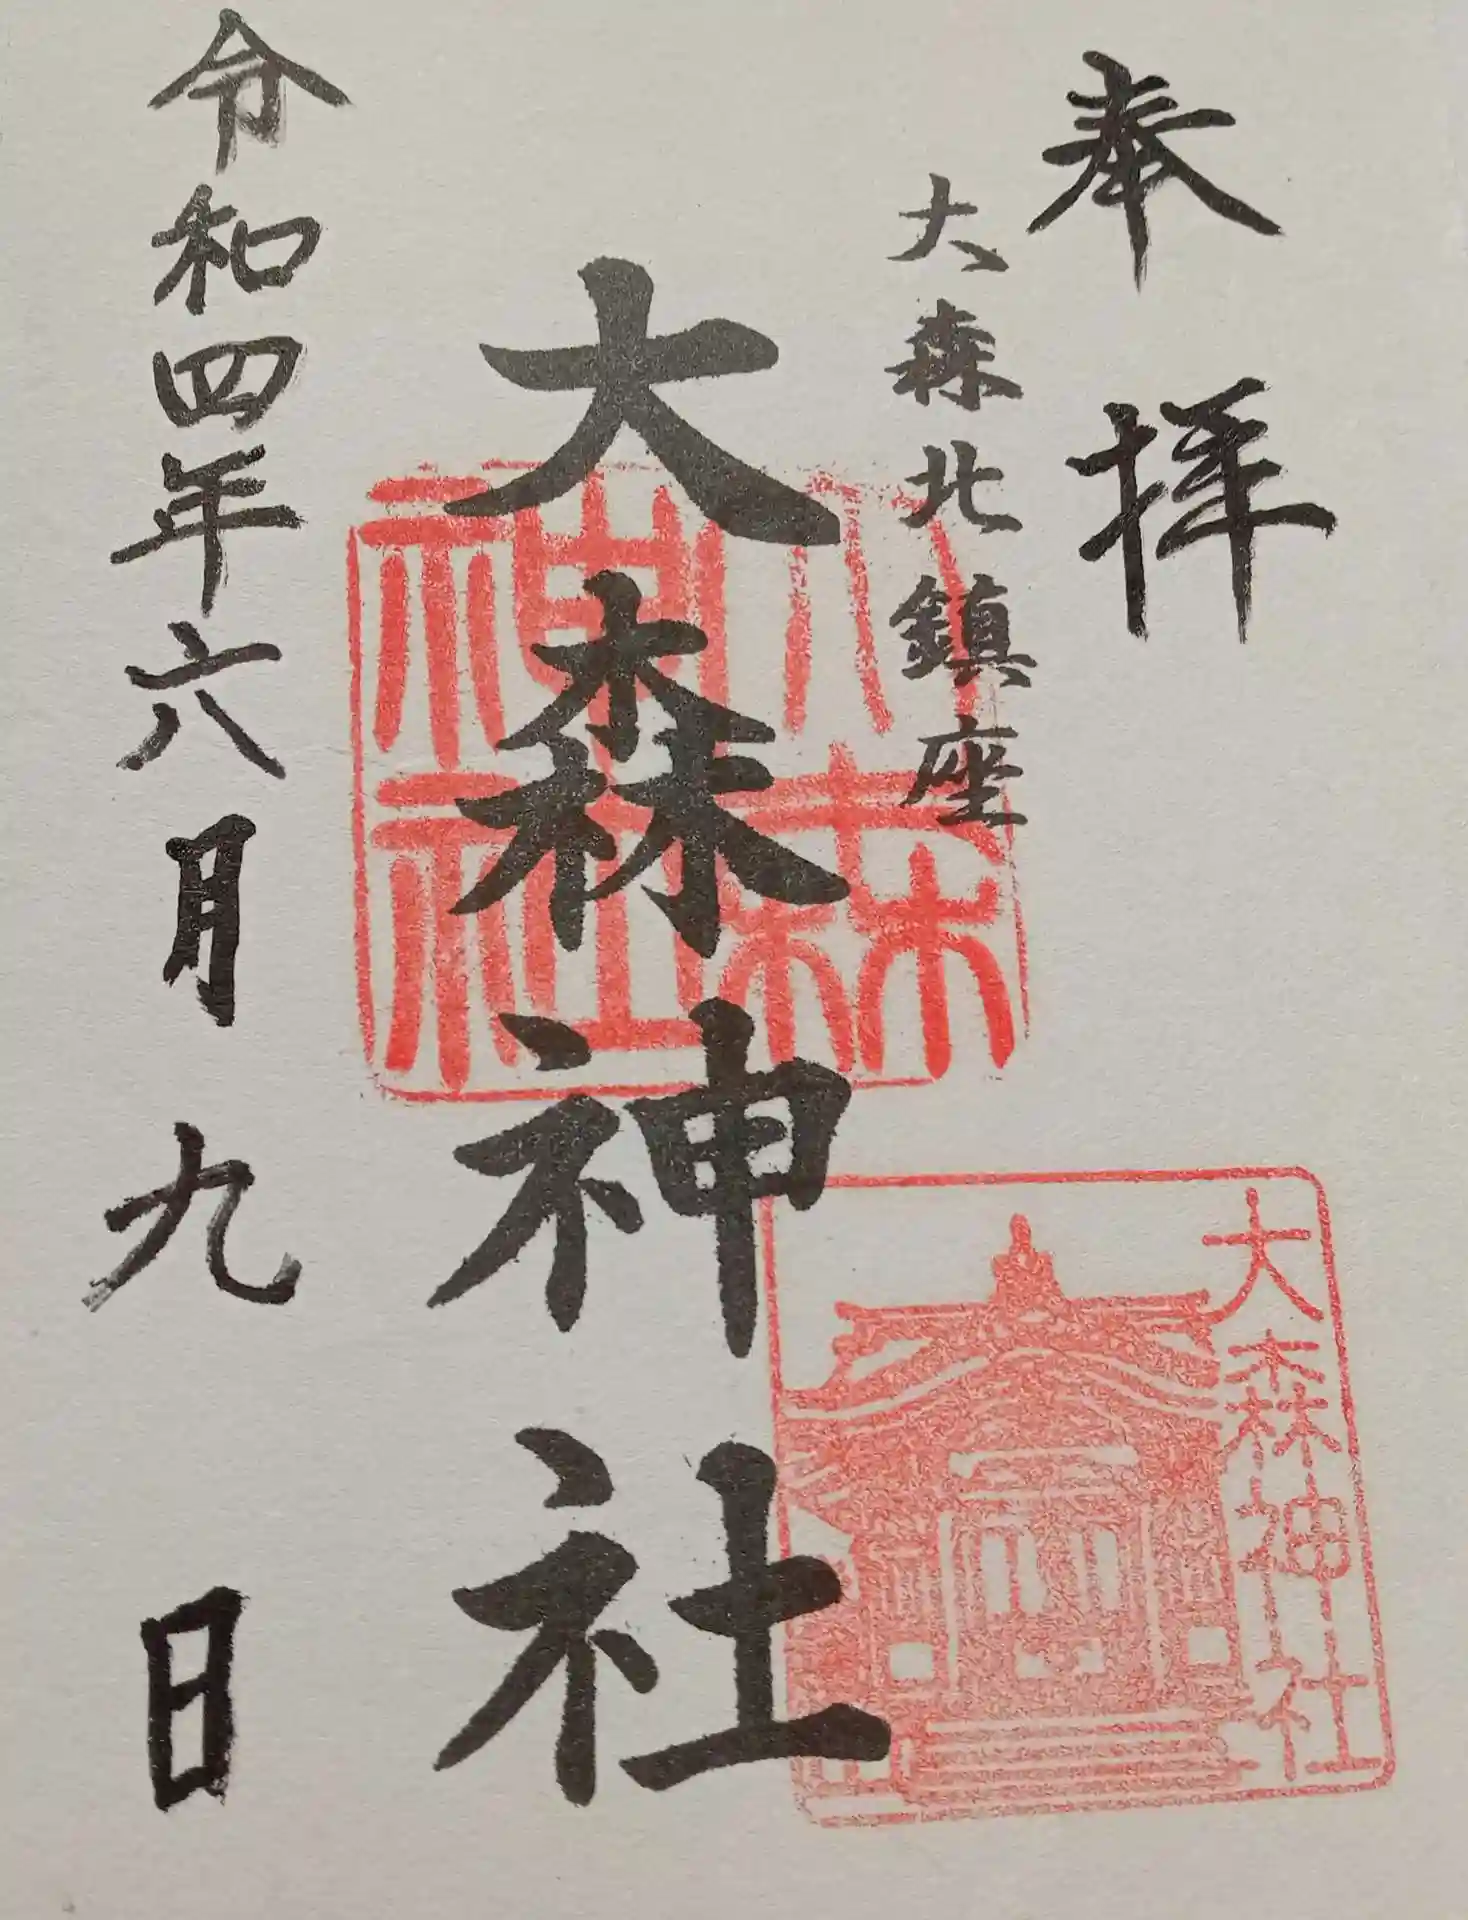 奉拝
大森北鎮座
大森神社
令和四年六月九日
大森神社
大森神社